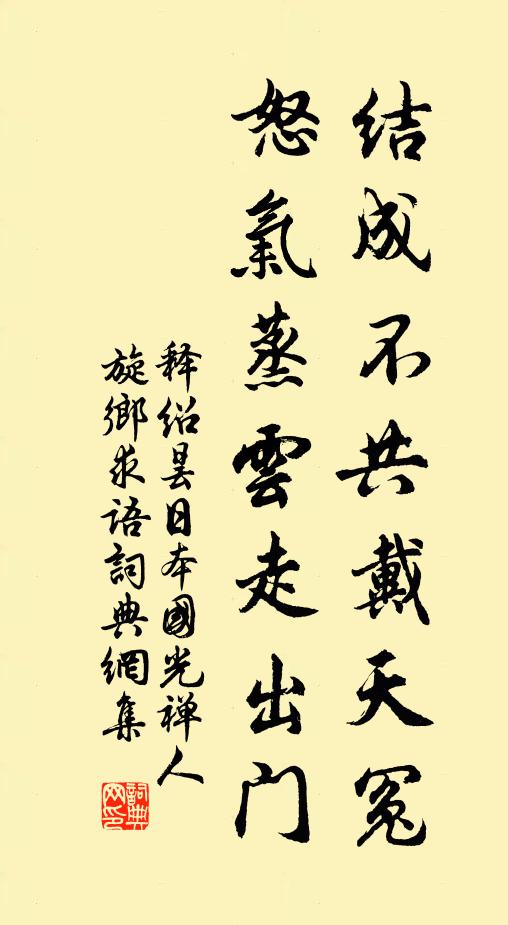 结成不共戴天冤
怒氣蒸雲走出门
释绍昙日本國光禅人
旋鄉求语詞典網集
詞典网印